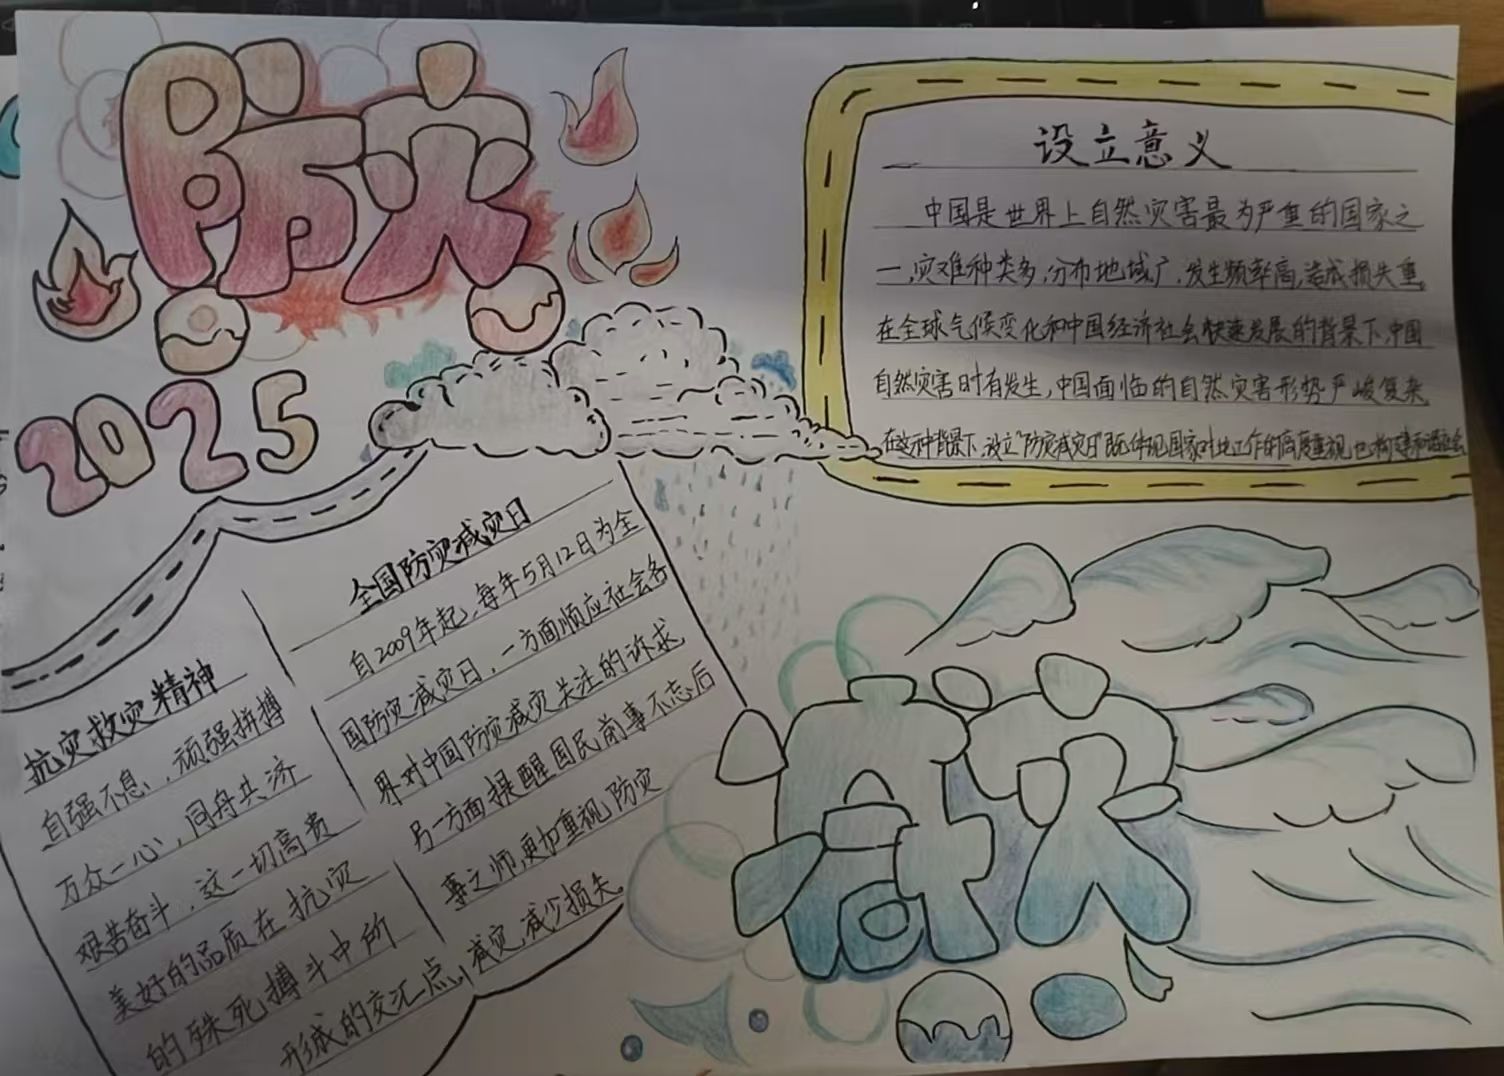 防灾
2025
设立意义
中国是世界上自然灾害最为严重的国家之
一,灾难种类多,分布地域广,发生频率高,造成损失重,
在全球气候变化和中国经济社会快速发展的背景下,中国
自然灾害时有发生,中国面临的自然灾害形势严峻复杂,
在这种背景下,设立"防灾减灾日"既体现国家对此工作的高度重视,也构建和谐社会
全国防灾减灾日
自2009年起,每年5月12日为全
国防灾减灾日,一方面顺应社会各
界对中国防灾减灾关注的诉求
另一方面提醒国民前事不忘后
事之师,更加重视,防灾
减灾,减少损失。
抗灾救灾精神
自强不息,顽强拼搏
万众一心,同舟共济
艰苦奋斗,这一切高贵
美好的品质在抗灾
的殊死搏斗中所
形成的交汇点,
灾